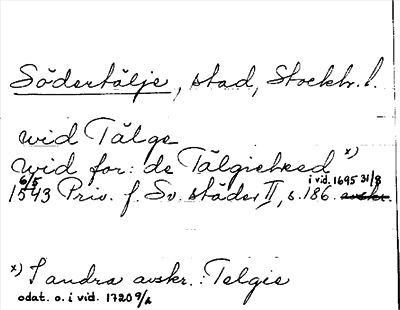 Södertälje, stad, Stockh. l.
wid Tälge
Wid for: de Tälgiebeed x)
i vid. 1695 31/8
6/5 1543 Priv. f. Sv. städer II, s. 186. avskr.
x) I andra avskr.: Telgie
odat. o. i vid. 1720 9/2